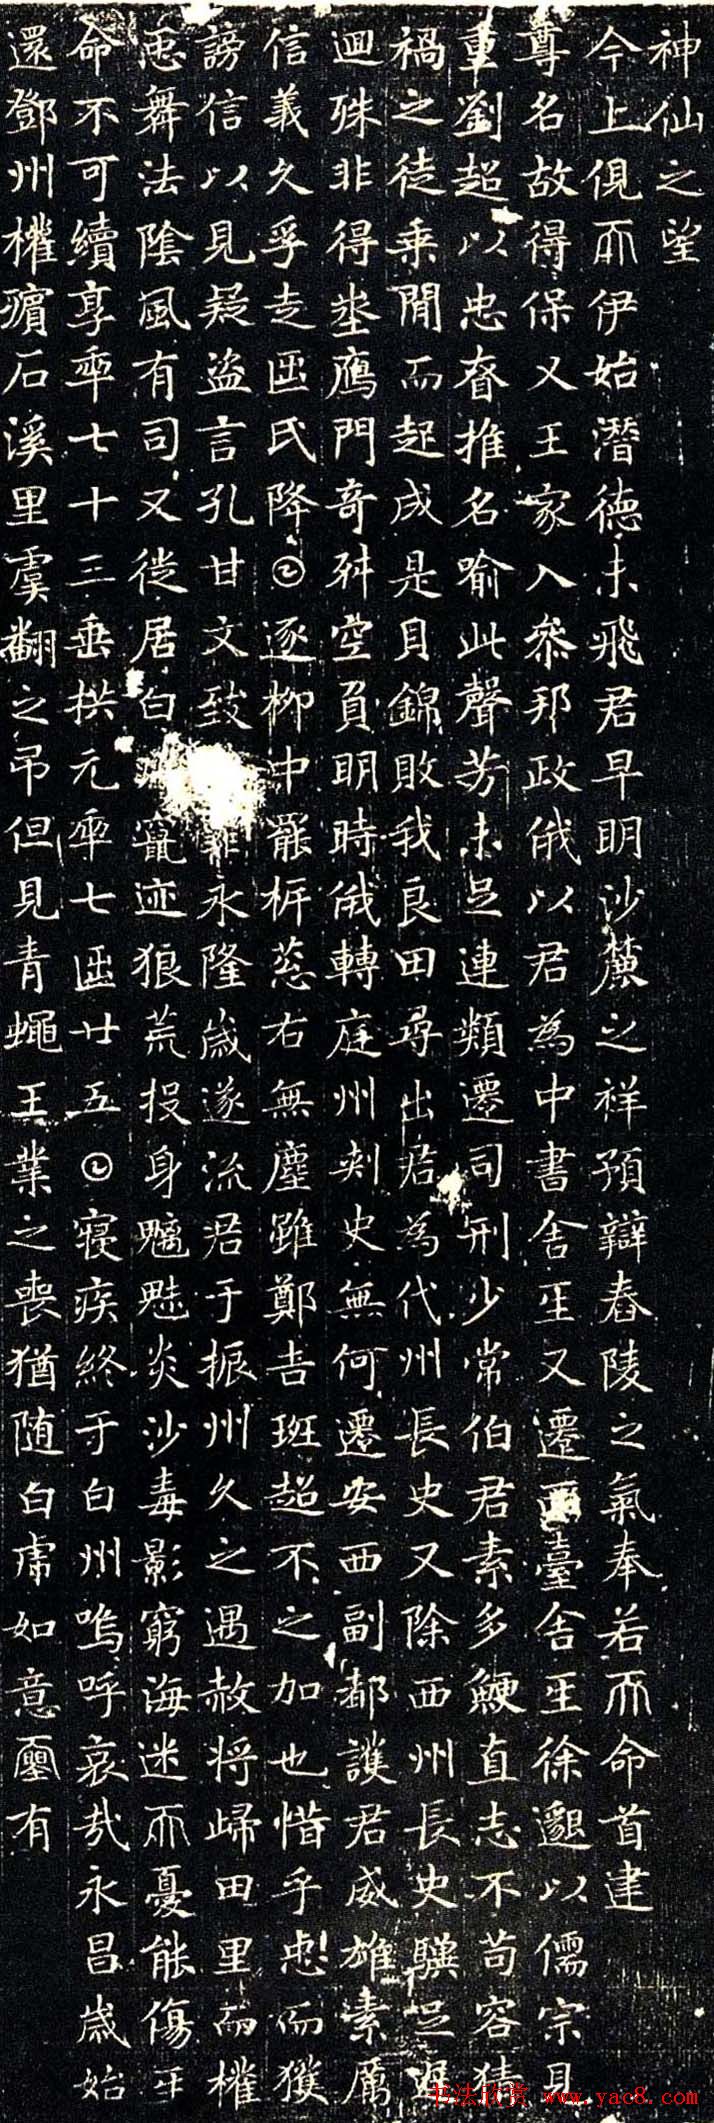 神仙之望
今上俔𠀑伊始潛德未飛君早明沙麓之祥預辯舂陵之氣奉若𠀑命首建
尊名故得保乂王家入叅邦政俄以君為中書舍𤯔又遷西臺舍𤯔徐邈以儒宗見
重劉超以忠昚推名喻此聲芳未足連類遷司刑少常伯君素多鯁直志不苟容猜
禍之徒乘間而起成是貝錦敗我良田尋出君為代州長史又除西州長史驥足遲
迴殊非得埊鴈門奇舛空負明時俄轉庭州刾史無何遷安西副都護君威雄素厲
信義久孚走𠥱氏降𡆠逐柳中罷柝葱右無塵雖鄭吉班超不之加也惜乎忠而獲
謗信以見疑盜言孔甘文致罪永隆歲遂流君于振州久之遇赦將歸田里而權
𢘑舞法陰風有司又徙居白州竄迹狼荒投身魑魅炎沙毒影窮海迷𠀑憂能傷𤯔
命不可續享𠡦七十三垂拱元𠡦七𠥱廿五𡆠寢疾終于白州嗚呼哀哉永昌歲始
還鄧州權殯石溪里虞翻之弔但見青蠅王業之喪猶隨白虎如意𡔈有
书法欣赏 www.yac8.com